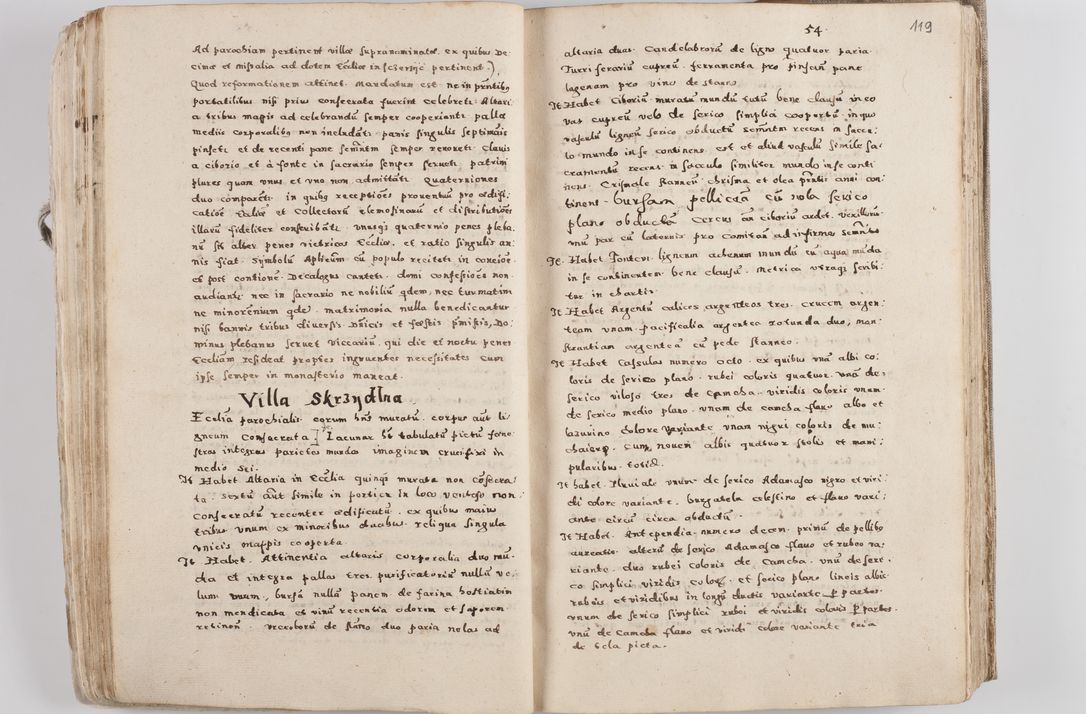 Ad parochiam pertinent villæ supranominatæ, ex quibus De
cimæ et missalia ad dotem Eccliæ in pertinent.
Quod reformationem attinet. Mandatum est ne in
portatilibus nisi prius consecrata fuerint celebret: Altari
a tribus mapis ad celebrandū semper cooperiant: palla
mediis corporalibus non includāt: panis singulis septimanis
pinset: et de recenti pane semper renovet: Clavis
a ciborio et à fonte in sacrario semper servet: patrini
plures quam unus et uno non admittāt: Quaterniones
duo comparēt: in quibus receptiões proventuū pro ædifi;
catiōe Eccliæ et Collectarū elemosinarū et distributiões
illarū fideliter conscribāt: unusqs quaternio penes pleba,
nū sit alter penes vitricos Eccliæ, et ratio singulis an
nis fiat. Symbolū Aplicum cū populo recitet: in concioe
et post contione. Decalogus cantet: domi confessiões non
audiantr nec in sacrario ne nobiliū qdem, nec turmatim
ne minorenium qde. matrimonia nulla benedicantur
nisi bannis tribus diversis Dnicis et festis pmissis, Do,
minus plebanus servet Vicariū, qui die et noctu penes
Eccliam resideat propter ingruentes necessitates cum
ipse semper in monasterio maneat.
Villa Skrzydlna
Ecclia parochialis corum muratū corpus aūt li
gneum Consecrata Lacunar tabulatū pictū fene
stras integras parietes mundos imaginem crucifixi in
medio sui.
It Habet Altaria in Ecclia quinqs murata non cōsecra
ta. sextū aūt simile in porticu in loco ventoso non
consecratū recenter ædificatū. ex quibus maius
tribus unum ex minoribus duabus. reliqua singula
unicis mappis cooperta.
It Habet. Attinentia altaris corporalia duo mū,
da et integra pallas tres. purificatoriū nullū ve,
lum unum, bursā nullā panem de farina hostiatim
non mendicata et vinū recentia odorem et saporem
retinēn. Urceolorū de stāno duo paria nolas ad

54.
119
altaria duas. Candelabrorū de ligno quatuor paria
Turriferariū cupreū. ferramenta pro pinsan pane
lagenam pro vino de stāno
It Habet Ciboriū muratū mundū tutū bene clausū in eo
vas cupreū velo de serico simplici coopertū in quo
vasculū ligneū serico obductū recens in saccu:
lo mundo in se continens. est et aliud vasculū simile sa:
cramentū recens in sacculo similiter mundo in se conti
nens. Crismale stanneū. chrisma et olea anni con,
tinens. bursam pelliceā cū nola serico
plano obductā Cereus an ciboriū ardet. Vexillorū
unū par cū laternis pro Comitan ad infirmos
It. Habet Fontem ligneum ahenum mundū cū aqua mūda
in se continentem bene clausū. Metrica utraqs scribi
tur in chartis.
It Habet Argentū calices argenteos tres. crucem argen:
team unam. pacificalia argentea rotunda duo, mon,
strantiam argenteā cū pede stanneo.
It Habet Casulas numero octo. ex quibus una albi co:
loris de serico plano. rubei coloris quatuor. unā de
serico viloso tres de Camcha. viridis coloris unam.
de serico medio plano. unam de camcha flavo albo et
lazurino colore Variante unam nigri coloris de mu,
chaiero. Cum novem albis quatuor stolis et mani,
pularibus totid.
It habet. Pluviale unum de serico Adamasco nigro et viri
di colore variante. burgatela celestino et flavo vari:
ante circū circa obductū.
It Habet. Antependia numero decem. primū de pellibo
aureatis. alterū de serico Adamasco flavo et rubeo va,
riante. duo rubei coloris de Camcha. unū de seri
co simplici viridis colore. et serico plano lineis albis
rubeis et viridibus in longū ductis variante P partes.
unum de serico simplici rubei et viridis coloris P partes.
unū de Camcha flavo et viridi colore variante tria
de tela picta.